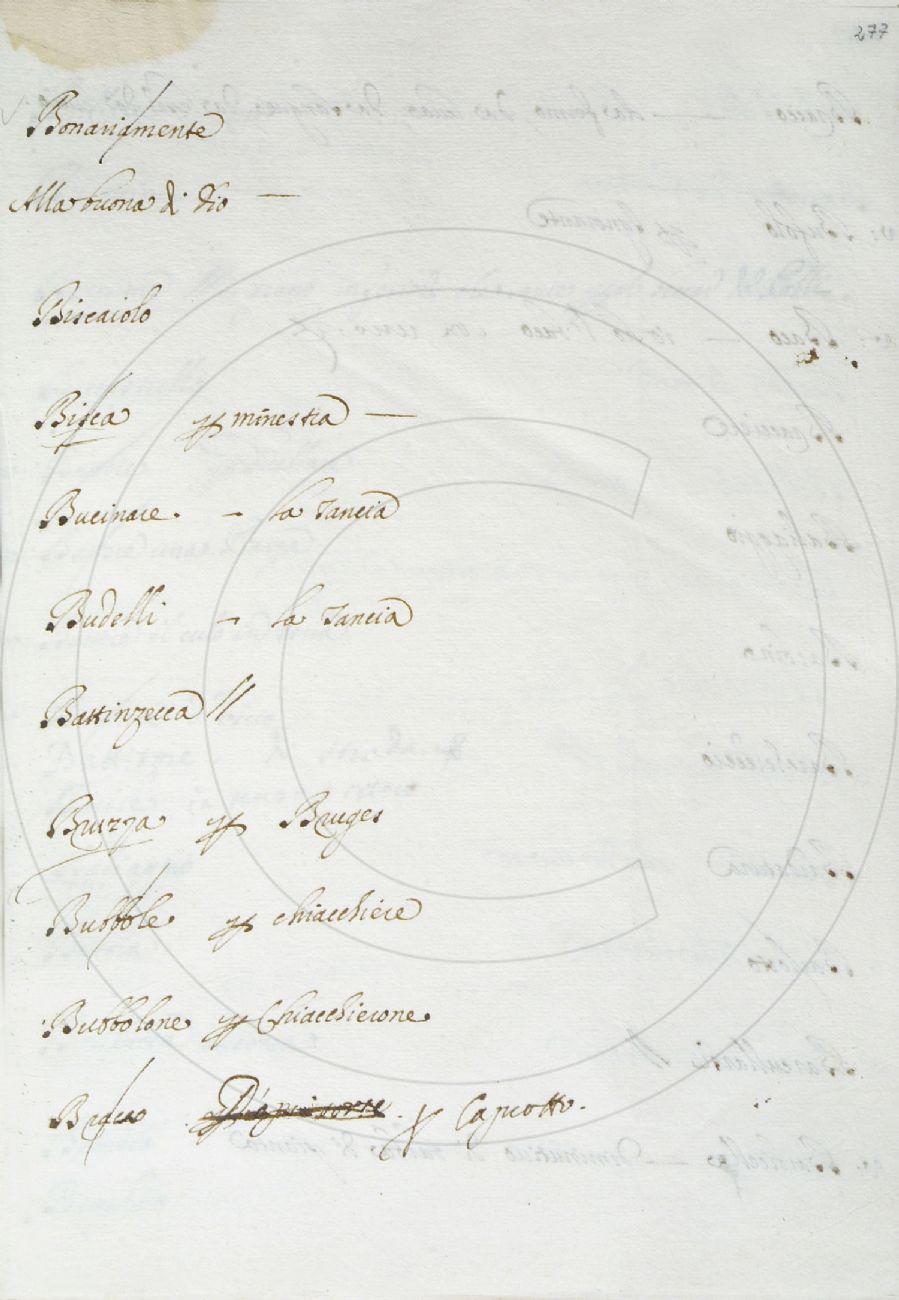 277
Bonariamente
Alla buona di Dio —
Biscaiolo
Bisca p minestra —
Bucinare. – la Tancia
Budelli – la Tancia
Battinzecca //
Bruzza p Bruges
Bubbole p chiacchiere
Bubbolone p Chiacchierone
Becco p Capretto.